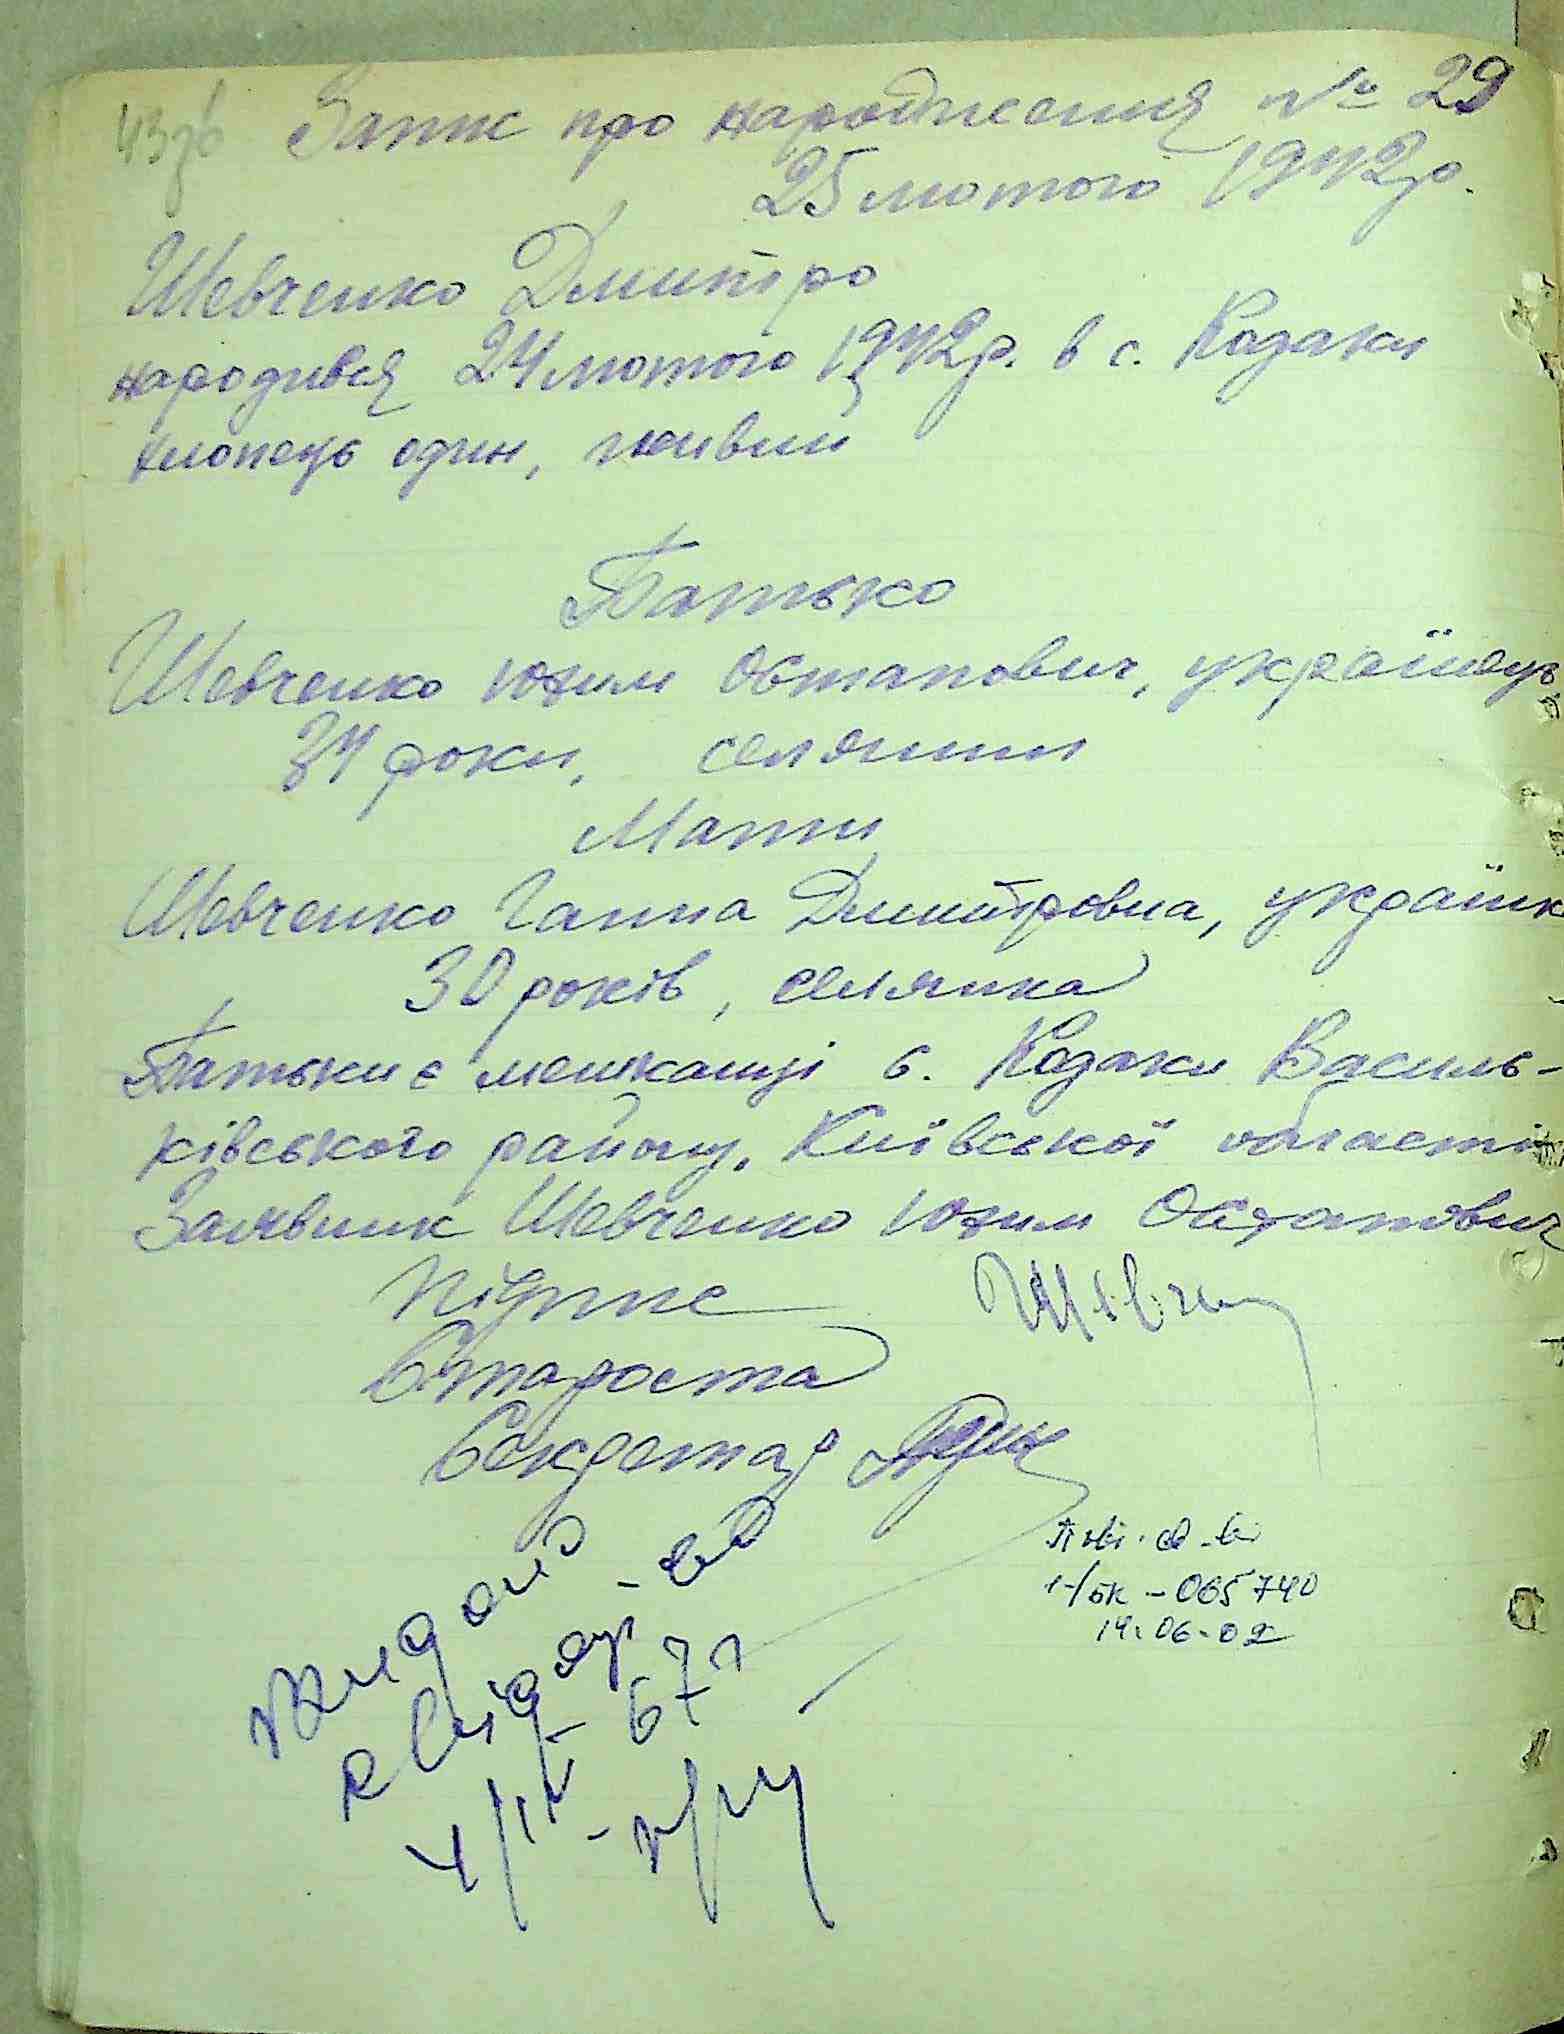 43зв
Запис про народження № 29
25 лютого 1942р.
Шевченко Дмитро
народився 24 лютого 1942р. в с. Козаки
хлопець один, живий
Батько
Шевченко Юхим Остапович, українець
34 роки, селянин
Мати
Шевченко Ганна Дмитровна, українк
30 років, селянка
Батьки є мешканці с. Козаки Василь-
ківського району, Київської області
Заявник Шевченко Юхим Остапович
Підпис
Староста
Секретар
Видано
свідоцт-во
4/IV-67р
Пов. св-во
1-/БК - 065740
14.06.02